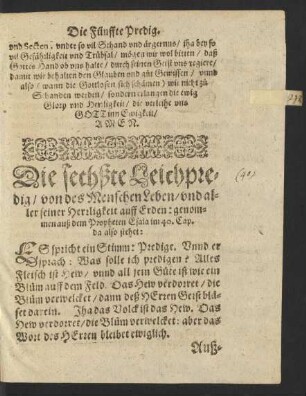 Die Fünffte Predig.
vnd Secten, vnder so vil Schand vnd ärgernus/ jha bey so
vil Gefährligkeit vnd Trübsal/ mögen wir wol bitten/ daß
Gottes Hand ob vns halte/ durch seinen Geist vns regiere/
damit wir behalten den Glauben vnd gůt Gewissen/ vnnd
also/ wann die Gottlosen sich schämen/ wir nicht zů
Schanden werden/ sondern erlangen die ewig
Glory vnd Herrligkeit/ die verleihe vns
GOTT inn Ewigkeit/
AMEN.
Die sechßte Leichpre-
dig/ von des Menschen Leben/ vnd al-
ler seiner Herrligkeit auff Erden: genom-
men auß dem Propheten Esaia im 40. Cap.
da also stehet:
ES spricht ein Stimm: Predige. Vnnd er
sprach: Was solle ich predigen? Alles
Fleisch ist Hew/ vnnd all sein Güte ist wie ein
Blům auff dem Feld. Das Hew verdorret/ die
Blům verwelcket/ dann deß HErren Geist blä-
set darein. Jha das Volck ist das Hew. Das
Hew verdorret/ die Blům verwelcket: aber das
Wort des HErren bleibet ewiglich.
Auß-